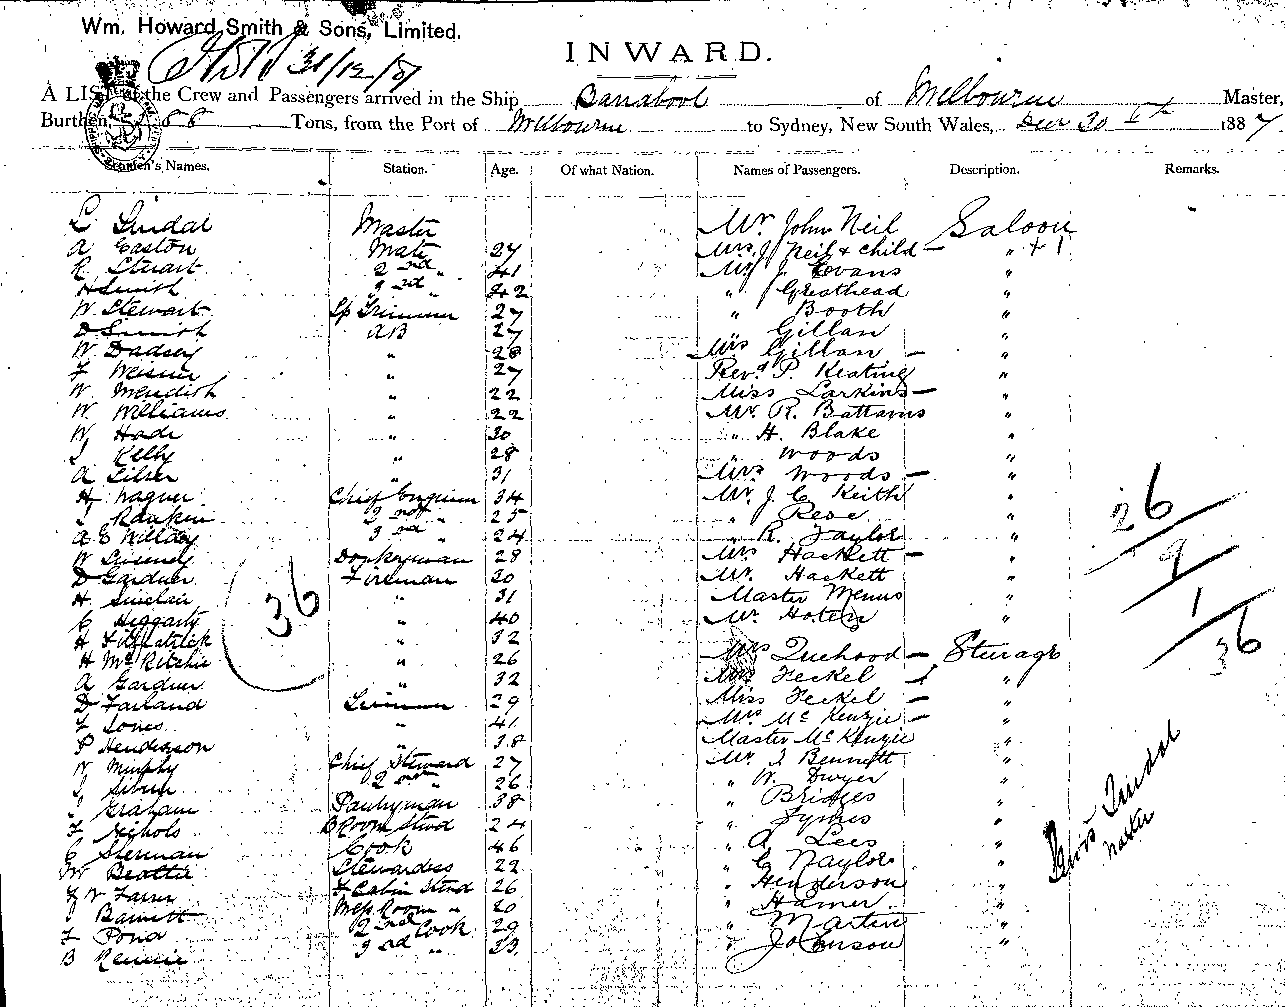 Wm. Howard Smith & Sons, Limited.
31/12/87
INWARD.
A LIST of the Crew and Passengers arrived in the Ship Barrabool of Melbourne Master,
Burthen, Tons, from the Port of Melbourne to Sydney, New South Wales, Dec 30th 1887
Seamen's Names. Station. Age. Of what Nation. Names of Passengers. Description. Remarks.
L Lindal Master Mr John Neil Saloon
A Easton Mate 27 Mrs J Neil & child — " + 1
R Stuart 2nd " 41 Mr J Evans "
H Smith 3rd " 42 " J Greathead "
W Stewart Lp Trimmer 27 " Booth "
D Smith AB 27 " Gillan "
W Dadsey " 28 Mrs Gillan — "
F " 27 Revd P. Keating "
W " 22 Miss Larkins — "
W Williams " 22 Mr R. Battams "
W " 30 " H. Blake "
J Kelly " 28 " Woods "
A " 31 Mrs Woods — "
H Wagner Chief Engineer 34 Mr J C Keith "
" Rankin 2nd " 25 " "
A E 3rd " 24 " R. Taylor "
W Donkeyman 28 Mrs Hackett — "
D Gardner Fireman 30 Mr. Hackett "
H Sinclair " 31 Master "
C Heggarty " 40 Mr "
H Fitzpatrick " 32
H McRitchie " 26 Mrs — Sturage
A Gardner " 32 Mrs Feckel "
D Farland Trimmer 29 Miss Feckel — "
F Jones " 41 Mrs McKenzie — "
P Henderson " 38 Master McKenzie "
W Murphy Chief Steward 27 Mr J Bennett "
J 2nd " 26 " W. Dwyer "
" Graham Pantryman 38 " Bridges "
F Nichols B Room Stwd 24 " Symes "
C Sherman Cook 46 " A Lees "
W Beattie Stewardess 22 " C Naylor "
F W F Cabin Stwd 26 " Henderson "
J Barnett Mess Room " 20 " Hamer "
F Pond 2nd Cook 29 " Martin "
B Rennie 3rd " 33 " Johnson "
36
26
9
1
36
Lindal
Master